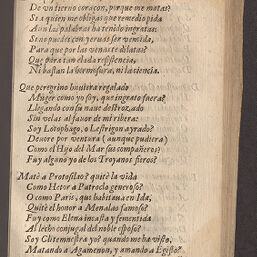 De vn tierno coraçon, porque me matas?
Si a quien me obligas que remedio pida
Aun las palabras ha tenido ingratas:
Si no puede con yerros ser vencida,
Para que por las venas te dilatas?
Que para tan elada resistencia,
Ni bastan la hermosura, ni la ciencia.
Que peregrino huuiera regalado
Muger como yo soy, que ingrato fuera?
Llegando con su naue destroçado
Sin velas al fauor de mi ribera:
Soy Lotophago, o Lestrigon ayrado?
Deuore por ventura (aunque pudiera)
Como el Hijo del Mar sus compañeros?
Fuy algano yo de los Troyanos fieros?
Matè a Protesilao? quitè la vida
Como Hector a Patroclo generoso?
O como Paris, que habitaua en Ida,
Quitè el honor a Menalao famoso?
Fuy como Elena incasta y fementida
Al lecho conjugal del noble esposo?
Soy Clitemnestra yo? quando me ha visto,
Matando a Agamenon, y amando a Egisto?